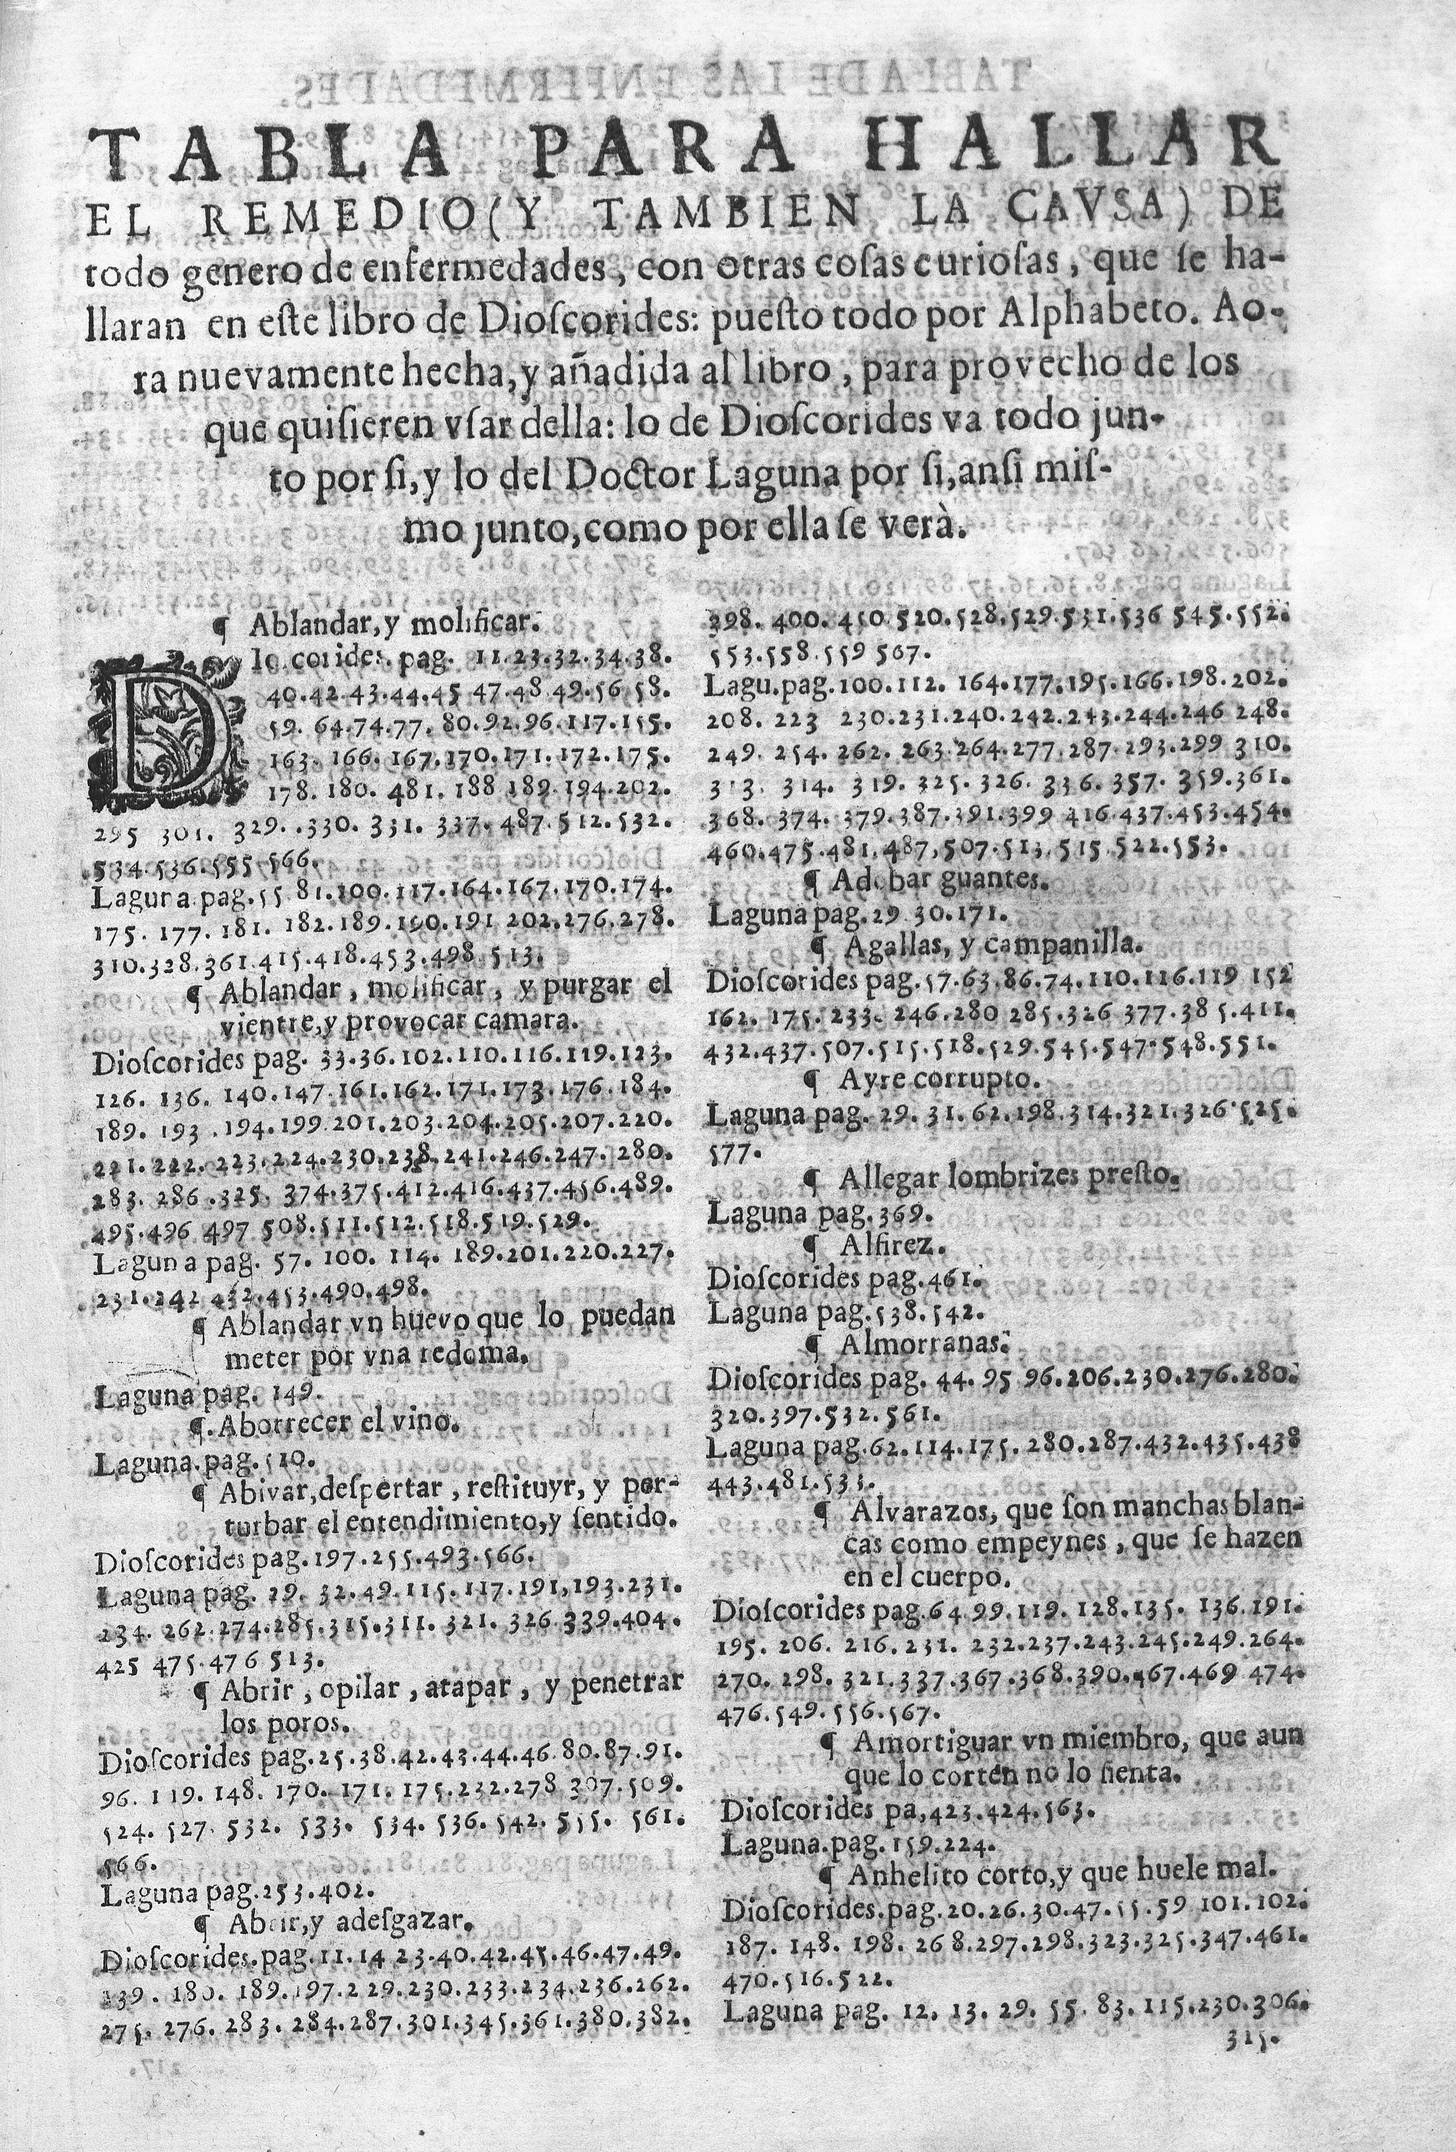 TABLA PARA HALLAR
EL REMEDIO (Y TAMBIEN LA CAVSA) DE
todo genero de enfermedades, con otras coſas curioſas, que ſe ha-
llaran en eſte libro de Dioſcorides: pueſto todo por Alphabeto. Ao-
ra nuevamente hecha, y añadida al libro, para provecho de los
que quiſieren vſar della: lo de Dioſcorides va todo jun-
to por ſi, y lo del Doctor Laguna por ſi, anſi miſ-
mo junto, como por ella ſe verà.
¶ Ablandar, y molificar.
DIoſcorides. pag. 11.23.32.34.38.
40.42.43.44.45 47.48.49.56 58.
59. 64.74.77. 80.92.96.117.155.
163. 166. 167.170.171.172.175.
178. 180. 481. 188 189.194.202.
295 301. 329. .330. 331. 337. 487.512.532.
534.536.555 566.
Laguna pag.55 81.100.117.164.167.170.174.
175. 177. 181. 182.189.190.191 202.276.278.
310.328.361.415.418.453.498 513.
¶ Ablandar, molificar, y purgar el
vientre, y provocar camara.
Dioſcorides pag. 33.36.102.110.116.119.123.
126. 136. 140.147.161.162.171.173.176.184.
189. 193 .194.199.201.203.204.205.207.220.
221.222. 223.224.230.238.241.246.247. 280.
283. 286 .325. 374.375.412.416.437.456.489.
495.496 497 508.511.512.518.519.529.
Laguna pag. 57. 100. 114. 189.201.220.227.
231.242 432.453.490.498.
¶ Ablandar vn huevo que lo puedan
meter por vna redoma.
Laguna pag. 149.
¶. Aborrecer el vino.
Laguna.pag.510.
¶ Abivar, deſpertar, reſtituyr, y per-
turbar el entendimiento, y ſentido.
Dioſcorides pag.197.255.493.566.
Laguna pag. 29. 32.49.115.117.191,193.231.
234. 262.274.285.315.311. 321. 326 339.404.
425 475.476 513.
¶ Abrir, opilar, atapar, y penetrar
los poros.
Dioſcorides pag.25.38.42.43.44.46.80.87.91.
96. 119. 148. 170. 171. 175.232.278 307.509.
524. 527. 532. 533. 534. 536. 542. 555. 561.
566.
Laguna pag.253.402.
¶ Abrir, y adeſgazar.
Dioſcorides.pag.11.14 23.40.42.45.46.47.49.
139. 180. 189.197.229.230.233.234.236.262.
275. 276. 283. 284.287.301.345.361.380.382.
398. 400. 450 520.528.529.531.536 545.552.
553.558.559 567.
Lagu.pag.100.112. 164.177.195.166.198.202.
208. 223 230.231.240.242.243.244.246 248.
249. 254. 262. 263.264.277.287.293.299 310.
313. 314. 319. 325. 326. 336. 357. 359.361.
368. 374. 379.387.391.399 416.437.453.454.
460.475.481.487,507.513.515.522.553.
¶ Adobar guantes.
Laguna pag.29 30.171.
¶ Agallas, y campanilla.
Dioſcorides pag.57.63.86.74.110.116.119 152
162. 175. 233. 246.280 285.326 377.385.411.
432.437.507.515.518.529.545.547.548.551.
¶ Ayre corrupto.
Laguna pag. 29. 31. 62.198.314.321.326.525.
577.
¶ Allegar lombrizes preſto.
Laguna pag.369.
¶ Alfirez.
Dioſcorides pag.461.
Laguna pag.538.542.
¶ Almorranas.
Dioſcorides pag. 44. 95 96.206.230.276.280.
320.397.532.561.
Laguna pag.62.114.175. 280.287.432.435.438
443.481.533.
¶ Alvarazos, que ſon manchas blan-
cas como empeynes, que ſe hazen
en el cuerpo.
Dioſcorides pag.64 99.119. 128.135. 136.191.
195. 206. 216.231. 232.237.243.245.249.264.
270. 298. 321.337.367.368.390.467.469 474.
476.549.556.567.
¶ Amortiguar vn miembro, que aun
que lo corten no lo ſienta.
Dioſcorides pa,423.424.563.
Laguna.pag.159.224.
¶ Anhelito corto, y que huele mal.
Dioſcorides.pag.20.26.30.47.55.59 101.102.
187. 148. 198. 268.297.298.323.325.347.461.
470.516.522.
Laguna pag. 12. 13. 29. 55. 83. 115.230.306.
315.